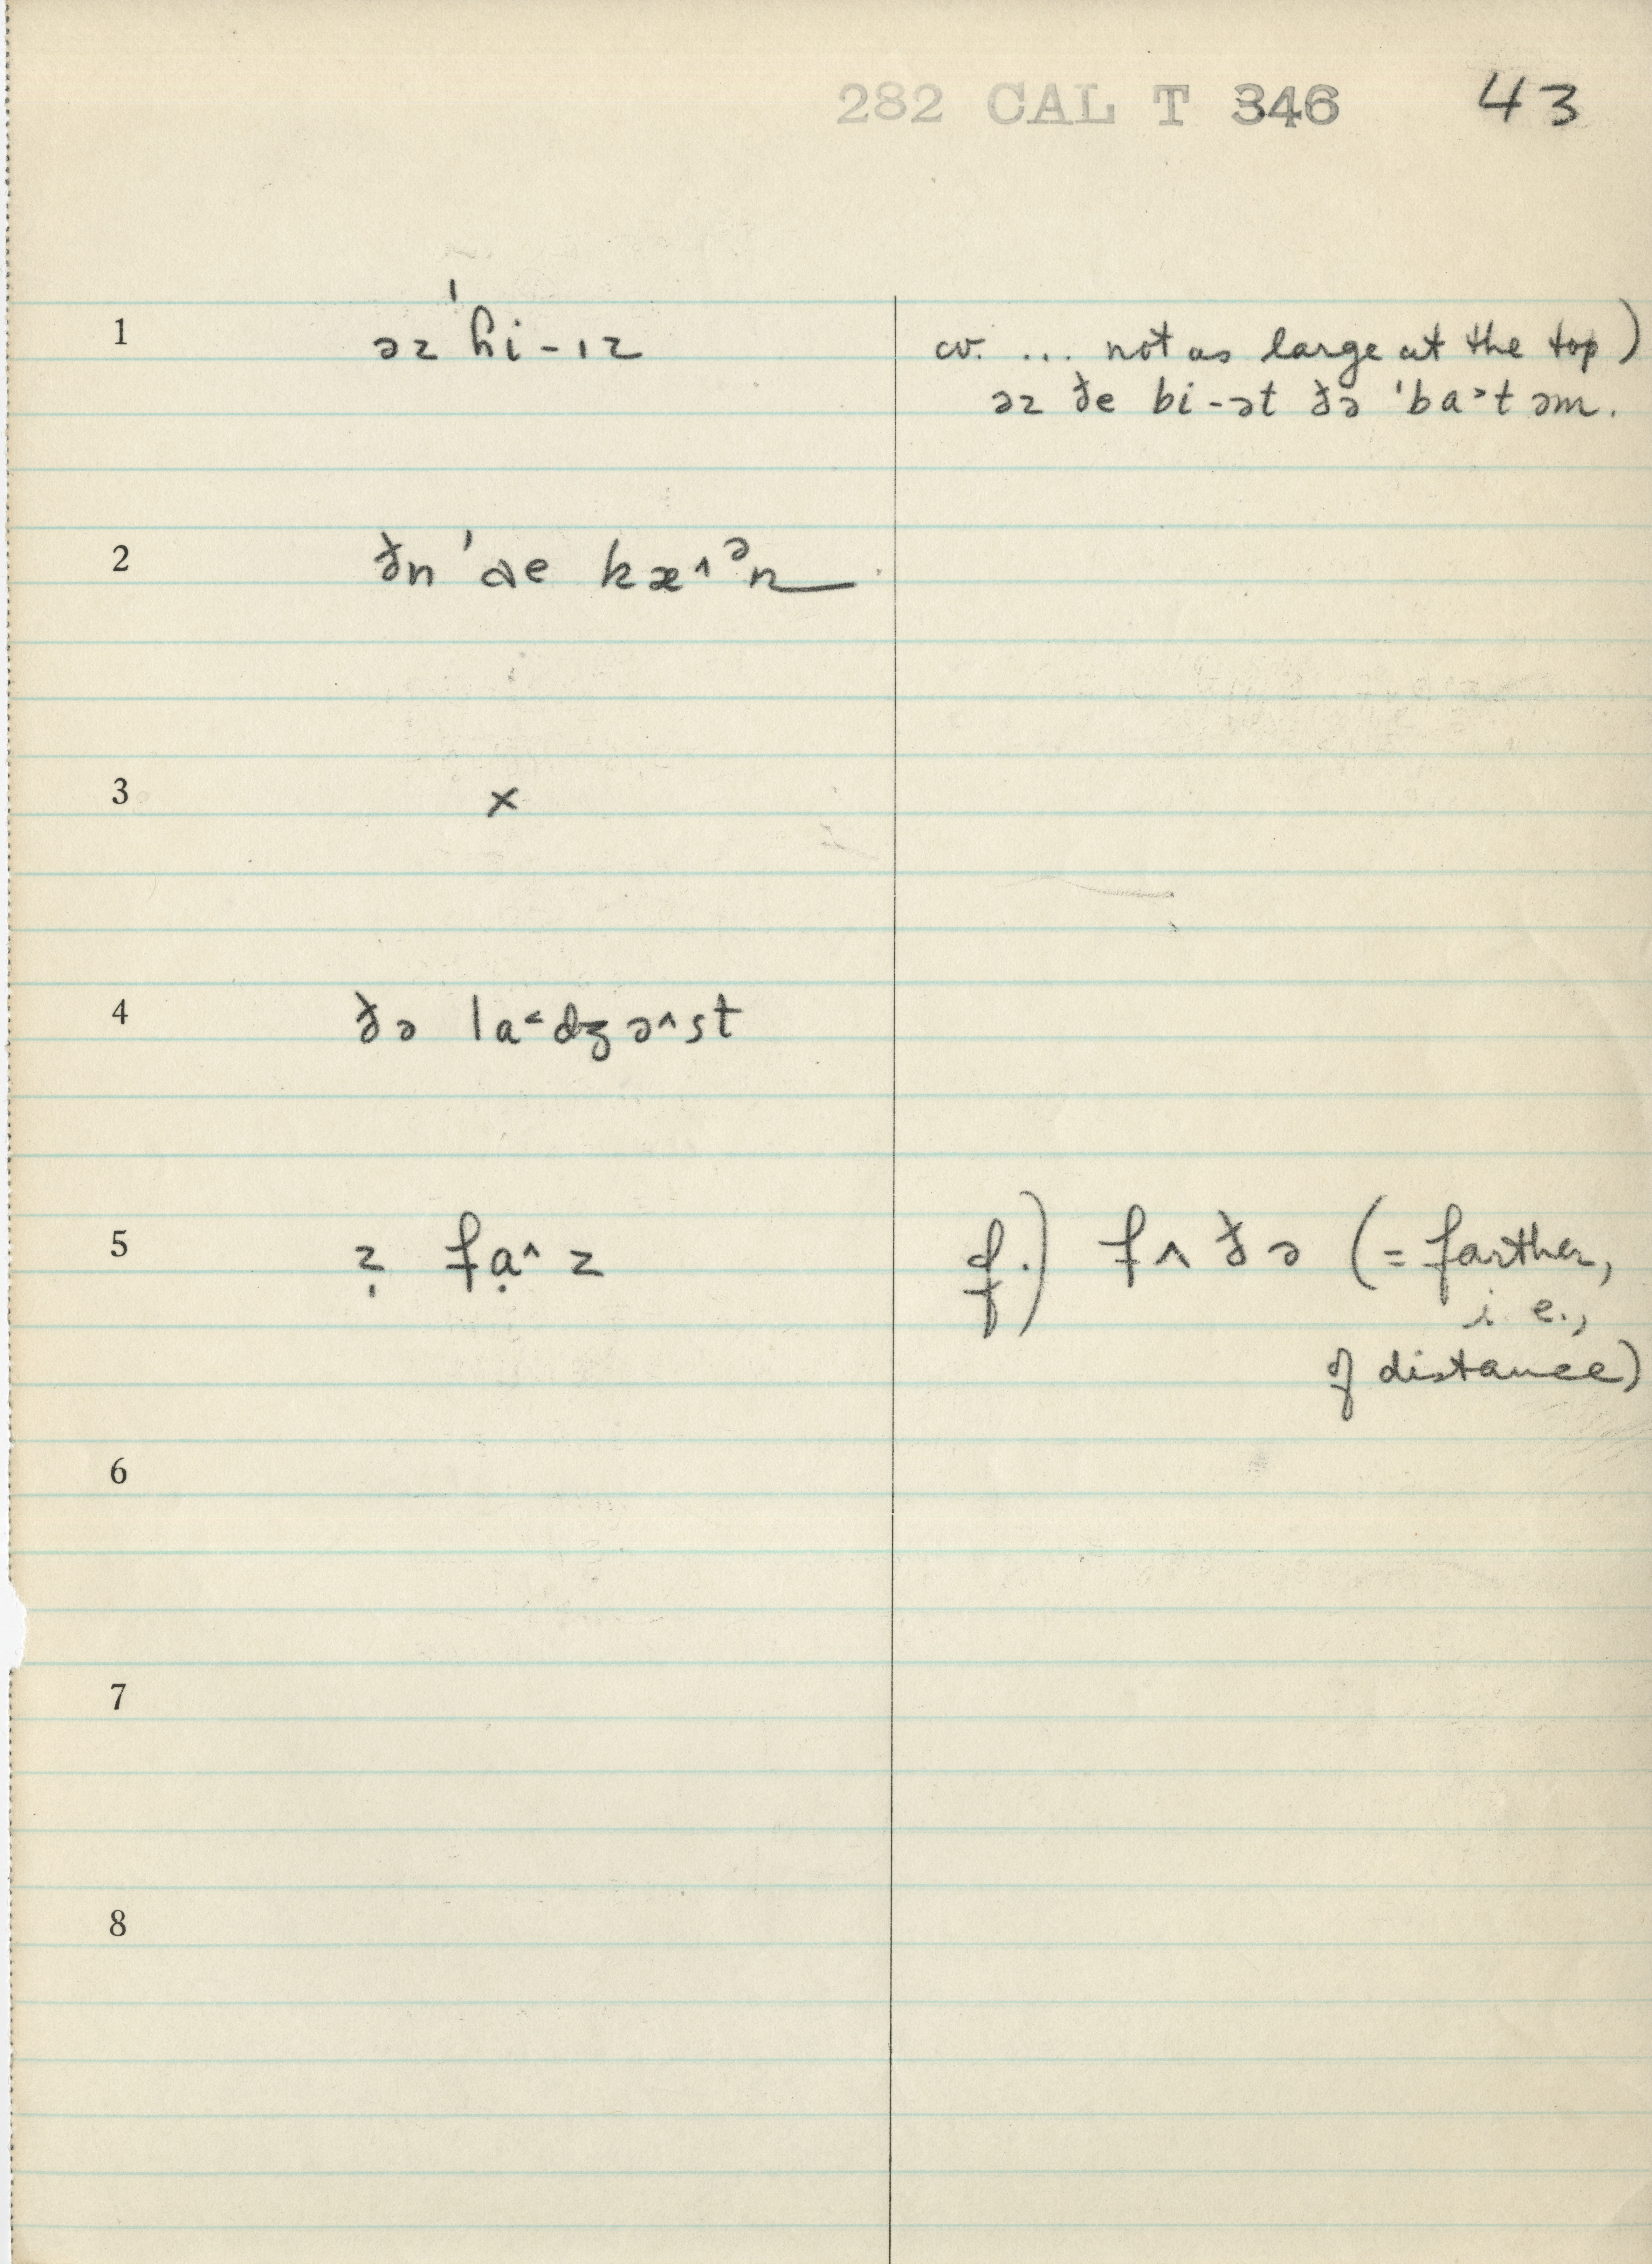 282 CAL T 346 43
1 əz ˈhi-ɪz cv. ... not as large at the top)
əz ðe bi-ət ðə ˈba˃təm.
2 ðn ˈɑe kæ˄ᵊn
3 x
4 ðə la˂dʒə˄st
5 z̩ fạ˄z cf.) fʌðə (= farther,
i.e.,
of distance)
6
7
8